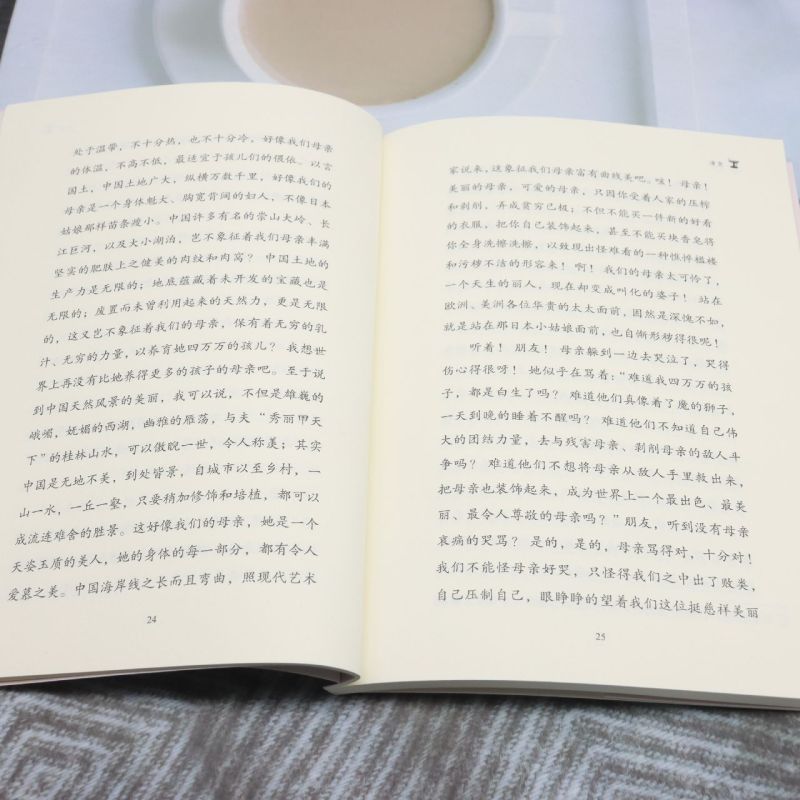 处于温带，不十分热，也不十分冷，好像我们母亲
的体温，不高不低，最适宜于孩儿们的偎依。以言
国土，中国土地广大，纵横万数千里，好像我们的
母亲是一个身体魁大、胸宽背阔的妇人，不像日本
姑娘那样苗条瘦小。中国许多有名的崇山大岭、长
江巨河，以及大小湖泊，岂不象征着我们母亲丰满
坚实的肥肤上之健美的肉纹和肉窝？中国土地的
生产力是无限的；地底蕴藏着未开发的宝藏也是
无限的；废置而未曾利用起来的天然力，更是无限
的，这又岂不象征着我们的母亲，保有着无穷的乳
汁、无穷的力量，以养育她四万万的孩儿？我想世
界上再没有比她养得更多的孩子的母亲吧。至于说
到中国天然风景的美丽，我可以说，不但是雄巍的
峨嵋，妩媚的西湖，幽雅的雁荡，与夫“秀丽甲天
下”的桂林山水，可以傲睨一世，令人称羡；其实
中国是无地不美，到处皆景，自城市以至乡村，一
山一水，一丘一壑，只要稍加修饰和培植，都可以
成流连难舍的胜景。这好像我们的母亲，她是一个
天姿玉质的美人，她的身体的每一部分，都有令人
爱慕之美。中国海岸线之长而且弯曲，照现代艺术
24
家说来，这象征我们母亲富有曲线美吧。咳！母亲！
美丽的母亲，可爱的母亲，只因你受着人家的压榨
和剥削，弄成贫穷已极；不但不能买一件新的好看
的衣服，把你自己装饰起来，甚至不能买块香皂将
你全身洗擦洗擦，以致现出怪难看的一种憔悴褴褛
和污秽不洁的形容来！啊！我们的母亲太可怜了，
一个天生的丽人，现在却变成叫化的婆子！站在
欧洲、美洲各位华贵的太太面前，固然是深愧不如，
就是站在那日本小姑娘面前，也自惭形秽得很呢！
听着！朋友！母亲躲到一边去哭泣了，哭得
伤心得很呀！她似乎在骂着：“难道我四万万的孩
子，都是白生了吗？难道他们真像着了魔的狮子，
一天到晚的睡着不醒吗？难道他们不知道自己伟
大的团结力量，去与残害母亲、剥削母亲的敌人斗
争吗？难道他们不想将母亲从敌人手里救出来，
把母亲也装饰起来，成为世界上一个最出色、最美
丽、最令人尊敬的母亲吗？”朋友，听到没有母亲
哀痛的哭骂？是的，是的，母亲骂得对，十分对！
我们不能怪母亲好哭，只怪得我们之中出了败类，
自己压制自己，眼睁睁的望着我们这位挺慈祥美丽
25